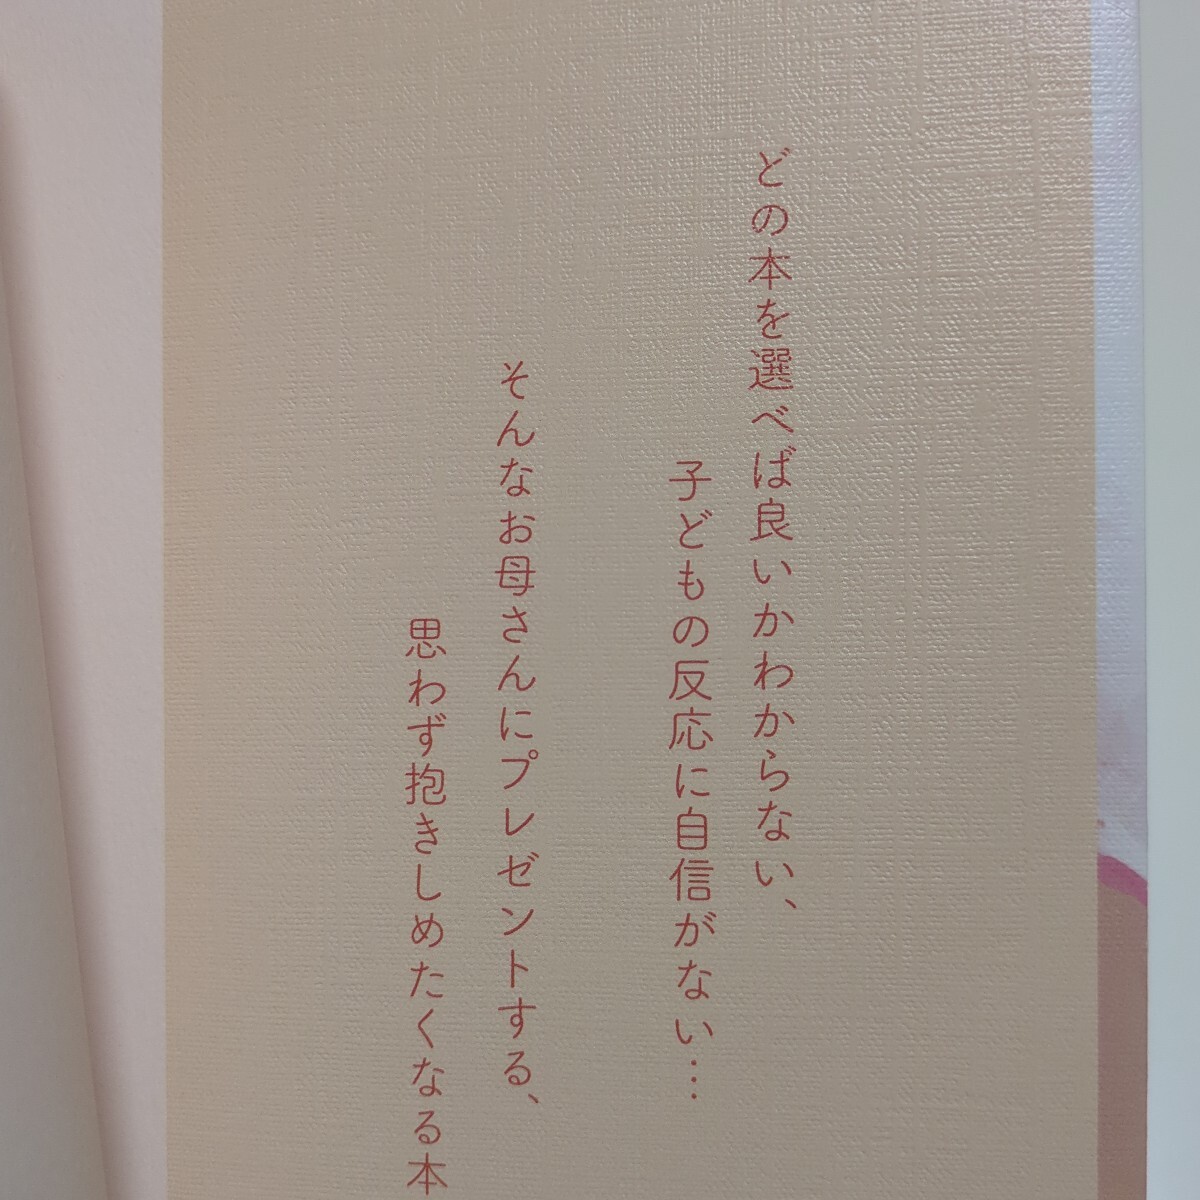 どの本を選べば良いかわからない、
子どもの反応に自信がない…
そんなお母さんにプレゼントする、
思わず抱きしめたくなる本